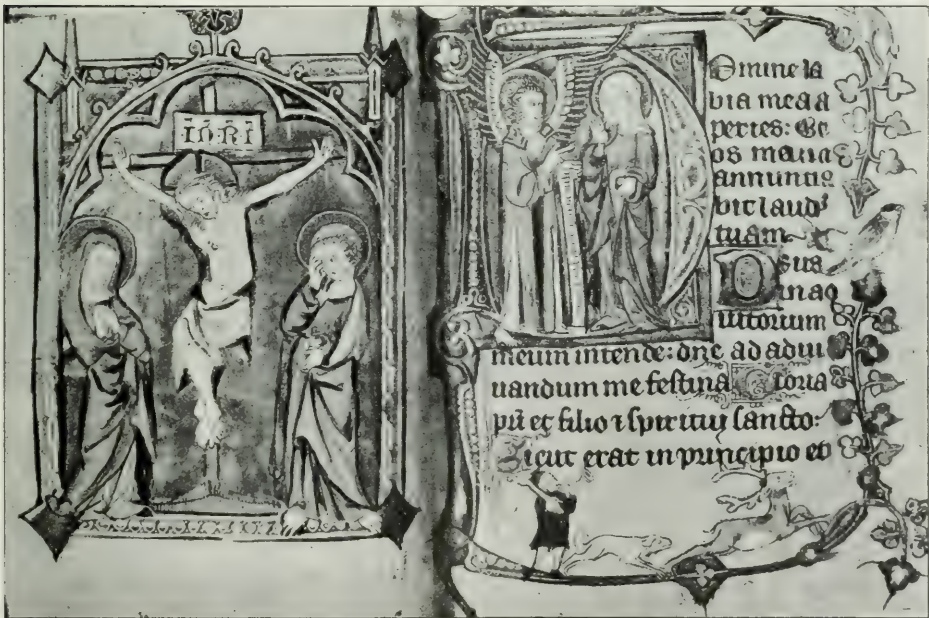 IH̄RI
Domine la
bia mea a
peries: Et
os meum
annuntia
bit laudē
tuam
Deus
in ad
iutorium
meum intende: dñe ad adiu
uandum me festina Gloria
pr̄i et filio ⁊ spiritui sancto:
Sicut erat in principio et